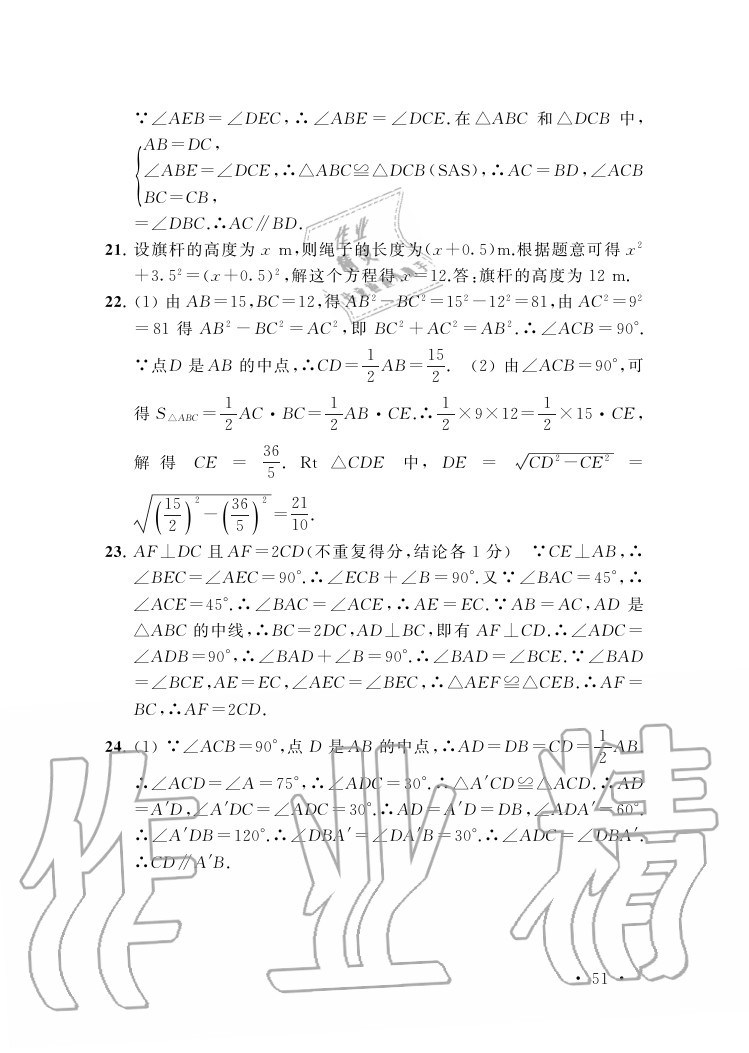 ∵∠AEB=∠DEC,∴∠ABE=∠DCE.在△ABC 和△DCB 中,
AB=DC,
∠ABE=∠DCE,∴△ABC≌△DCB(SAS),∴AC=BD,∠ACB
BC=CB,
=∠DBC.∴AC∥BD.
21. 设旗杆的高度为 x m,则绳子的长度为(x+0.5)m.根据题意可得 x²
+3.5²=(x+0.5)²,解这个方程得 x=12.答:旗杆的高度为 12 m.
22. (1) 由 AB=15,BC=12,得 AB²-BC²=15²-12²=81,由 AC²=9²
=81 得 AB²-BC²=AC²,即 BC²+AC²=AB².∴∠ACB=90°.
∵点D 是AB 的中点,∴CD=1/2AB=15/2. (2) 由∠ACB=90°,可
得 S△ABC=1/2AC·BC=1/2AB·CE.∴1/2×9×12=1/2×15·CE,
解得 CE=36/5. Rt △CDE 中, DE=√(CD²-CE²)=
√((15/2)²-(36/5)²)=21/10.
23. AF⊥DC 且 AF=2CD(不重复得分,结论各 1 分) ∵CE⊥AB,∴
∠BEC=∠AEC=90°.∴∠ECB+∠B=90°.又∵∠BAC=45°,∴
∠ACE=45°.∴∠BAC=∠ACE,∴AE=EC.∵AB=AC,AD 是
△ABC 的中线,∴BC=2DC,AD⊥BC,即有 AF⊥CD.∴∠ADC=
∠ADB=90°,∴∠BAD+∠B=90°.∴∠BAD=∠BCE.∵∠BAD
=∠BCE,AE=EC,∠AEC=∠BEC,∴△AEF≌△CEB.∴AF=
BC,∴AF=2CD.
24. (1) ∵∠ACB=90°,点 D 是 AB 的中点,∴AD=DB=CD=1/2AB
∴∠ACD=∠A=75°,∴∠ADC=30°.∴△A′CD≌△ACD.∴AD
=A′D,∠A′DC=∠ADC=30°.∴AD=A′D=DB,∠ADA′=60°.
∴∠A′DB=120°.∴∠DBA′=∠DA′B=30°.∴∠ADC=∠DBA′.
∴CD∥A′B.
作业精
· 51 ·